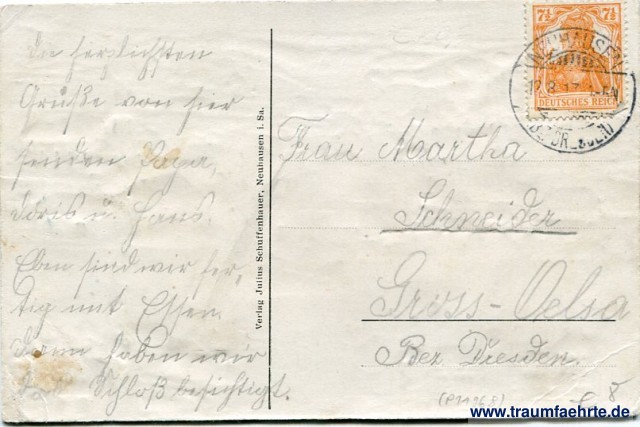 die herzlichsten
Grüße von hier
senden Papa,
Doris u. Hans.
Eben sind wir fer-
tig mit Essen.
Dann haben wir
das Schloß besichtigt.
Verlag Julius Schuffenhauer, Neuhausen i. Sa.
7½ 7½
DEUTSCHES REICH
NEUHAUSEN
Frau Martha
Schneider
Gross-Oelsa
Bez Dresden.
www.traumfaehrte.de